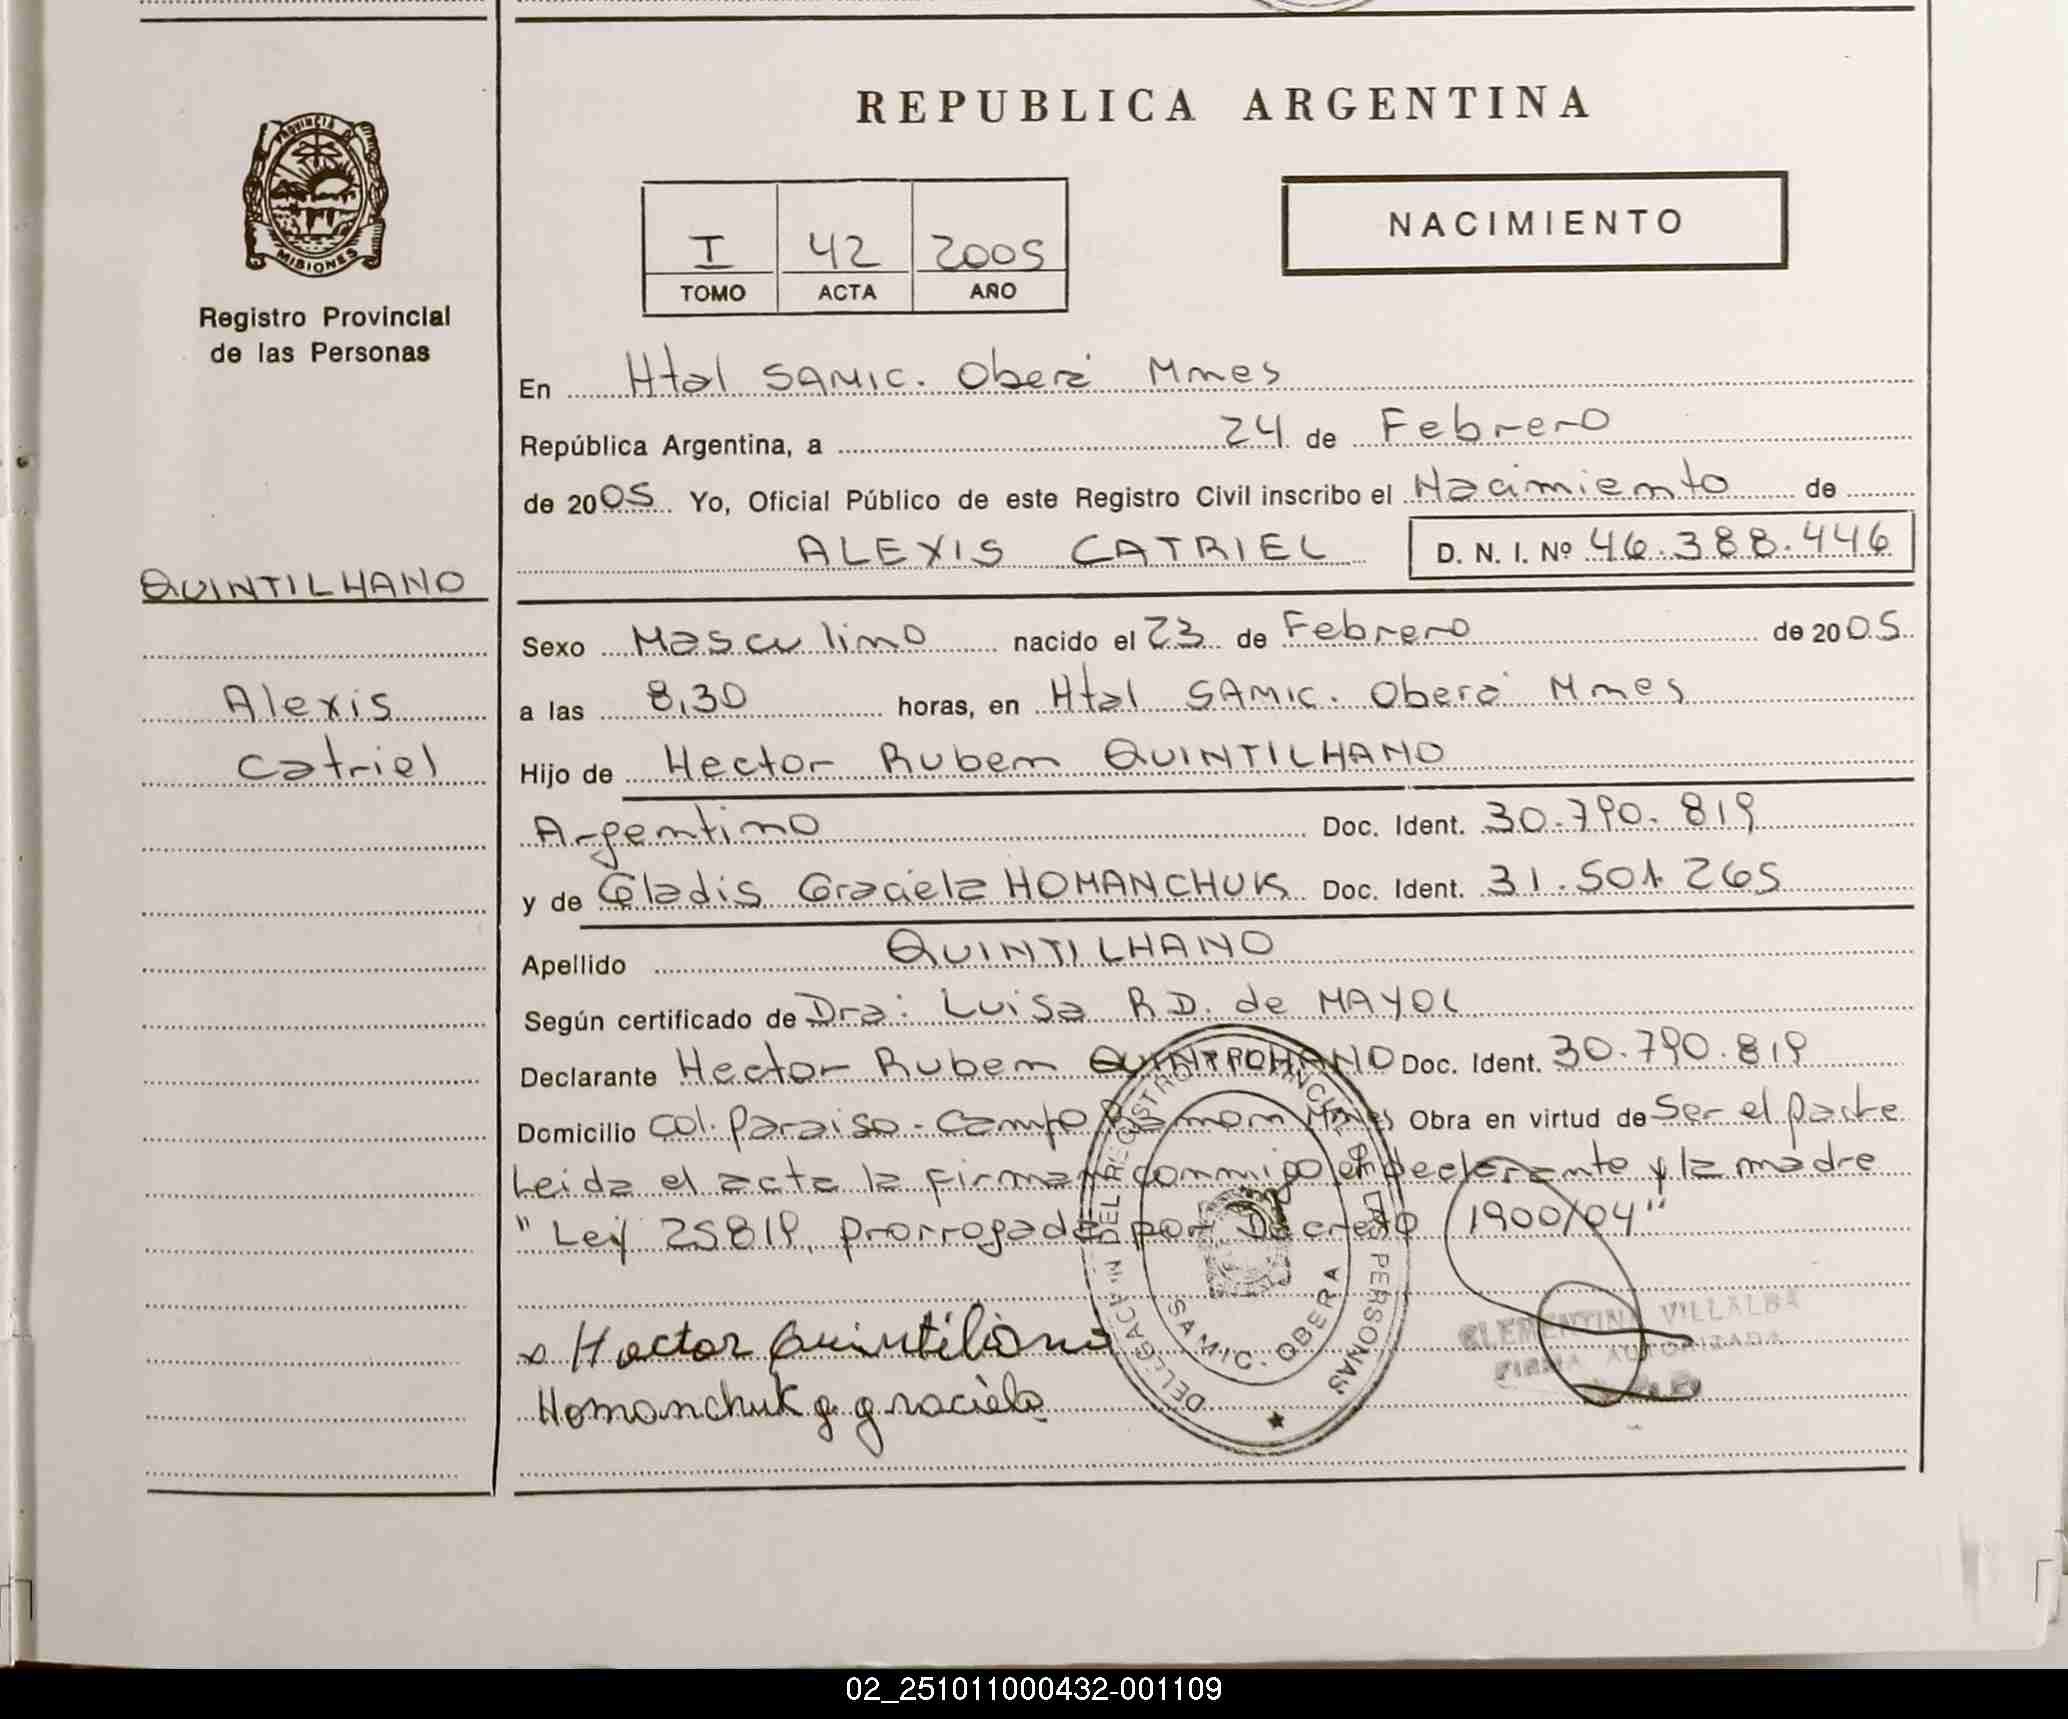 REPUBLICA ARGENTINA
PROVINCIA DE MISIONES
Registro Provincial
de las Personas
I 42 2005
TOMO ACTA AÑO
NACIMIENTO
En Htal SAMIC. Oberá Mnes
República Argentina, a 24 de Febrero
de 2005 Yo, Oficial Público de este Registro Civil inscribo el Nacimiento de
ALEXIS CATRIEL D. N. I. Nº 46.388.446
QUINTILHANO
Alexis
Catriel
Sexo Masculino nacido el 23 de Febrero de 2005
a las 8,30 horas, en Htal SAMIC. Oberá Mnes
Hijo de Hector Ruben QUINTILHANO
Argentino Doc. Ident. 30.790.819
y de Gladis Graciela HOMANCHUK Doc. Ident. 31.501.265
Apellido QUINTILHANO
Según certificado de Dra: Luisa R.D. de MAYOL
Declarante Hector Ruben Doc. Ident. 30.790.819
Domicilio Col. Paraiso - Campo Ramon Mnes Obra en virtud de Ser el padre
Leida el acta la firman conmigo el declarante y la madre
"Ley 25819, prorrogada por Decreto 1900/04"
Hector Quintiliano
Homanchuk g. graciela
DELEGACION DEL REGISTRO PROVINCIAL DE LAS PERSONAS
SAMIC. OBERA
CLEMENTINA VILLALBA
FIRMA AUTORIZADA
02_251011000432-001109